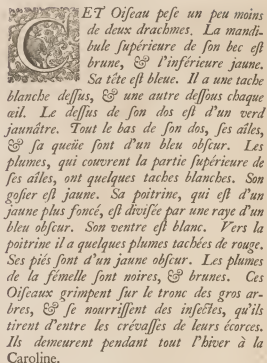 CET Oiſeau peſe un peu moins
de deux drachmes. La mandi-
bule ſupérieure de ſon bec eſt
brune, & l'inférieure jaune.
Sa tête eſt bleue. Il a une tache
blanche deſſus, & une autre deſſous chaque
œil. Le deſſus de ſon dos eſt d'un verd
jaunâtre. Tout le bas de ſon dos, ſes aîles,
& ſa queüe ſont d'un bleu obſcur. Les
plumes, qui couvrent la partie ſupérieure de
ſes aîles, ont quelques taches blanches. Son
goſier eſt jaune. Sa poitrine, qui eſt d'un
jaune plus foncé, eſt diviſée par une raye d'un
bleu obſcur. Son ventre eſt blanc. Vers la
poitrine il a quelques plumes tachées de rouge.
Ses piés ſont d'un jaune obſcur. Les plumes
de la fémelle ſont noires, & brunes. Ces
Oiſeaux grimpent ſur le tronc des gros ar-
bres, & ſe nourriſſent des inſectes, qu'ils
tirent d'entre les crévaſſes de leurs écorces.
Ils demeurent pendant tout l'hiver à la
Caroline.